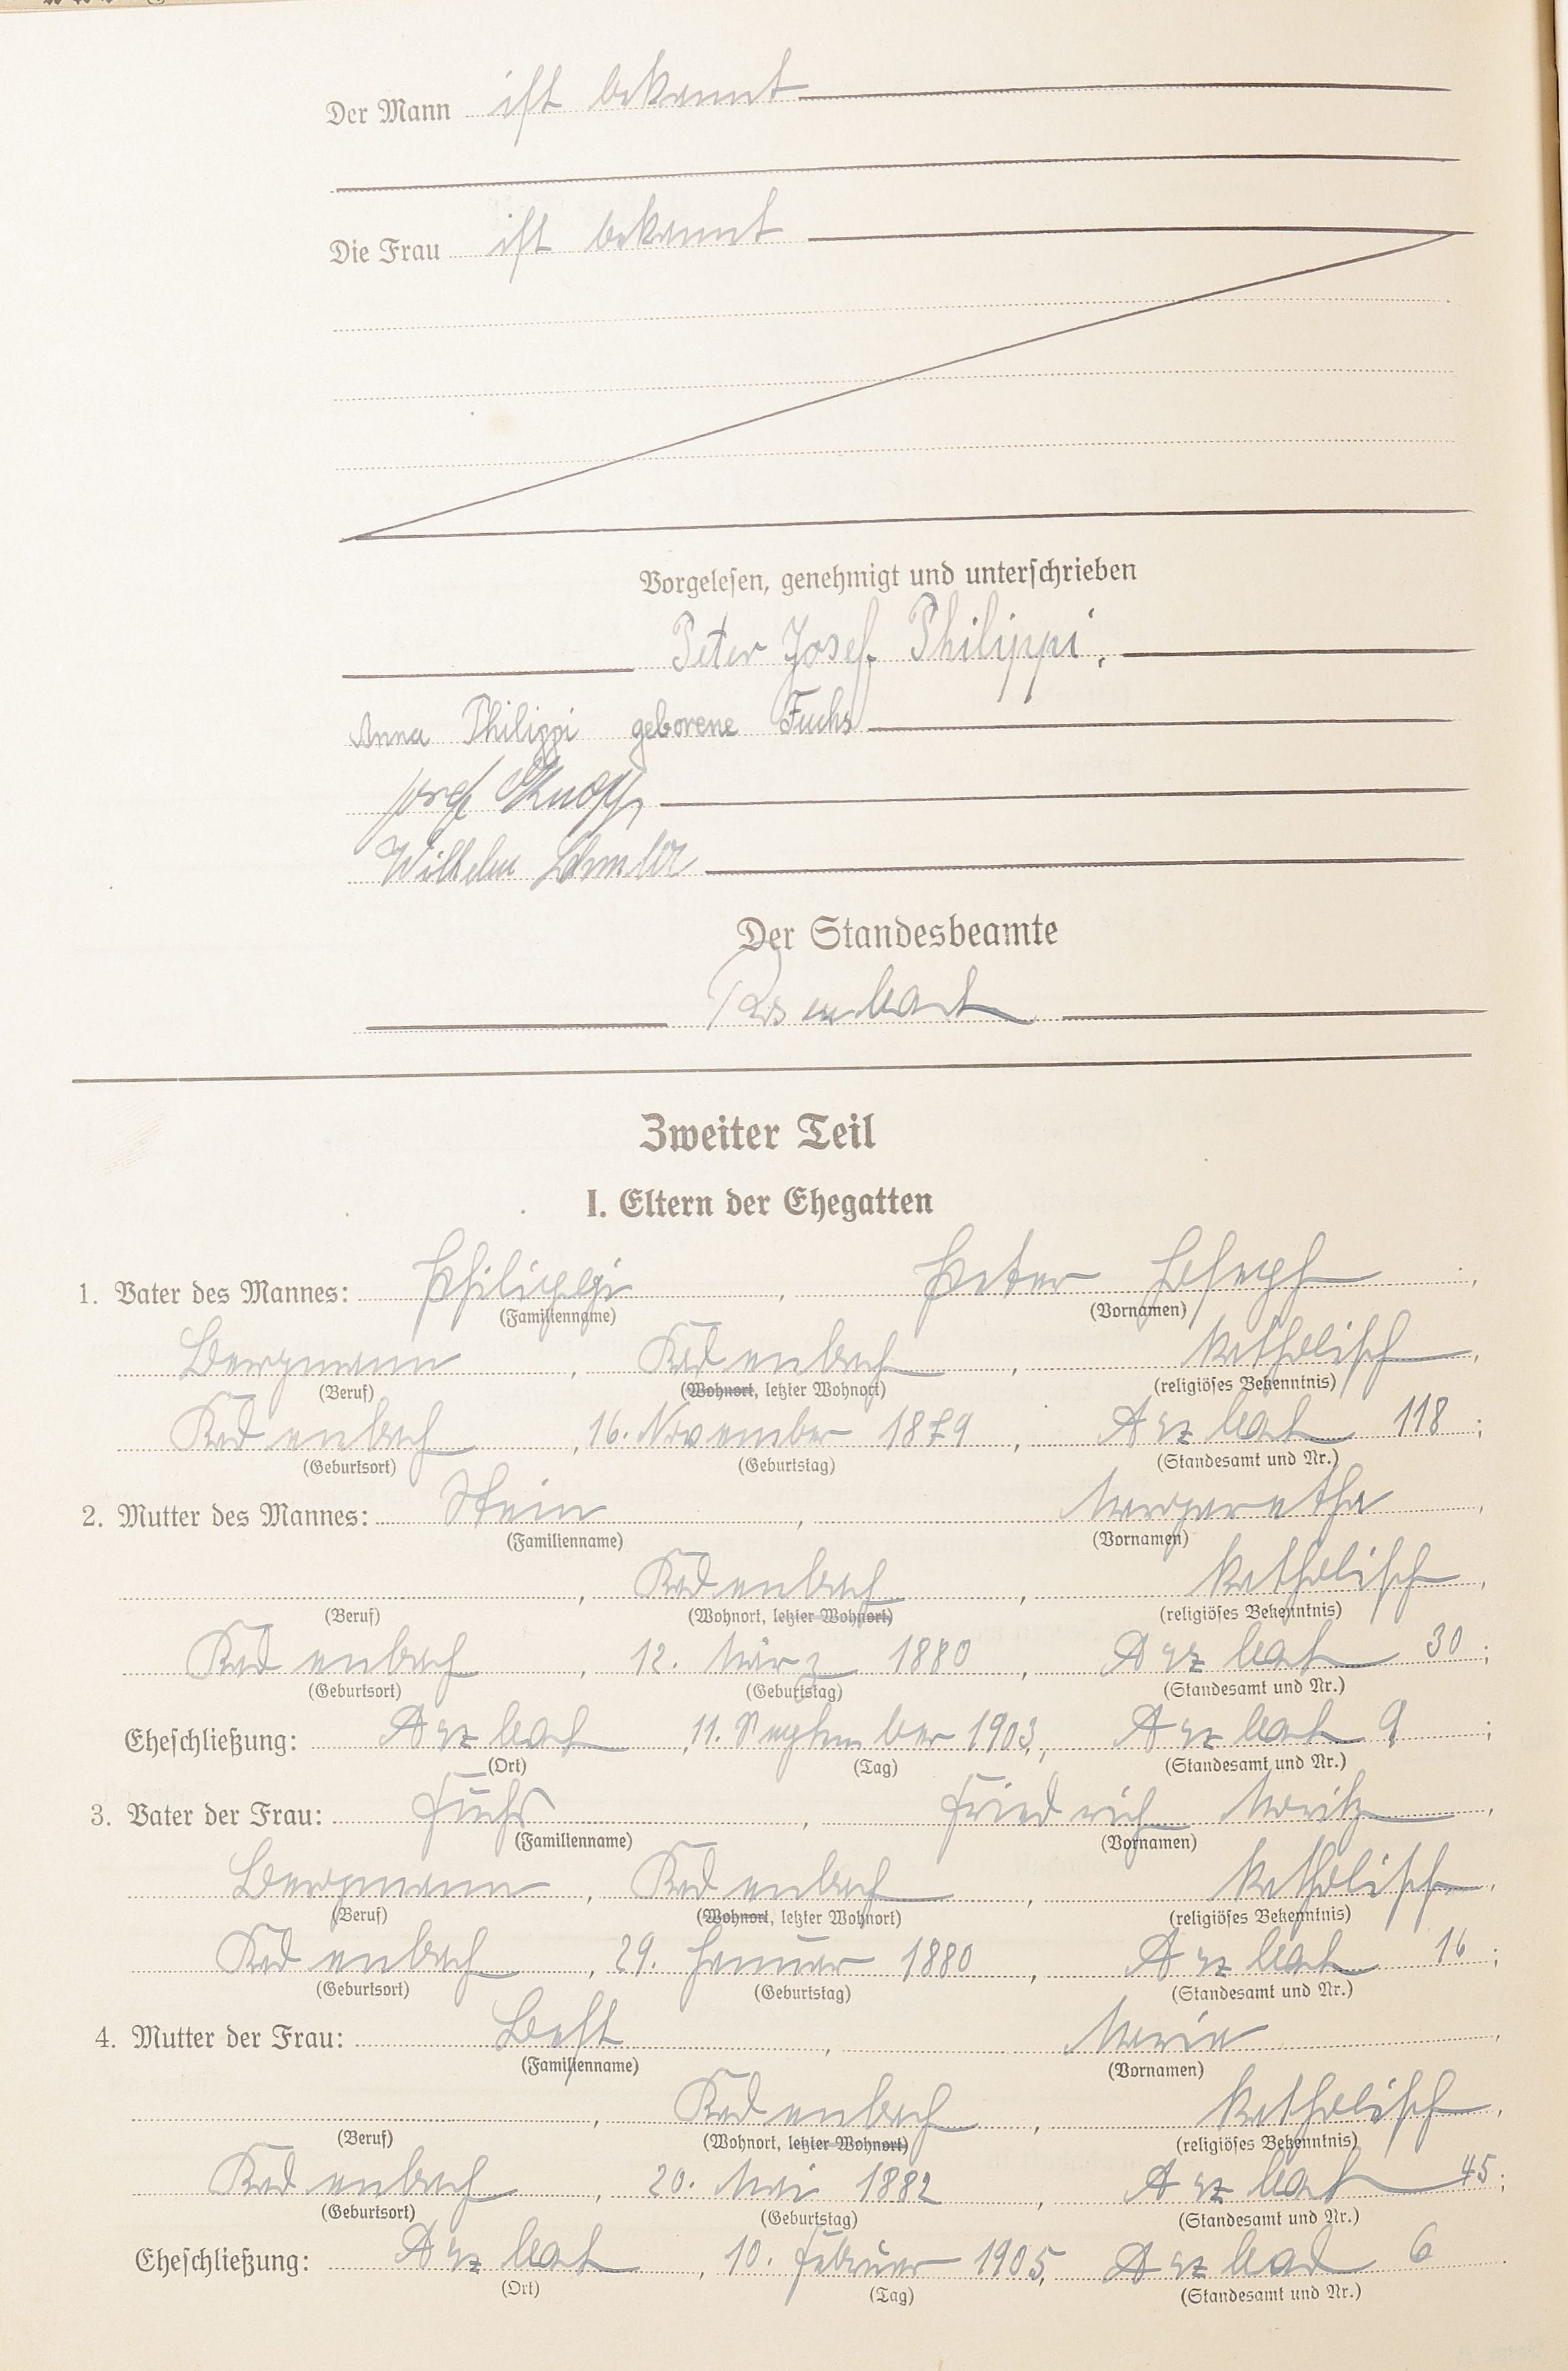 Der Mann ist bekannt
Die Frau ist bekannt
Vorgelesen, genehmigt und unterschrieben
Peter Josef Philippi.
Anna Philippi geborene Fuchs
Josef Knopp
Wilhelm
Der Standesbeamte
Zweiter Teil
I. Eltern der Ehegatten
1. Vater des Mannes: Philippi, Peter Joseph,
(Familienname) (Vornamen)
Bergmann, Kadenbach, katholisch,
(Beruf) (Wohnort, letzter Wohnort) (religiöses Bekenntnis)
Kadenbach, 16. November 1879, Arzbach 118;
(Geburtsort) (Geburtstag) (Standesamt und Nr.)
2. Mutter des Mannes: Stein, Margaretha,
(Familienname) (Vornamen)
, Kadenbach, katholisch,
(Beruf) (Wohnort, letzter Wohnort) (religiöses Bekenntnis)
Kadenbach, 12. März 1880, Arzbach 30;
(Geburtsort) (Geburtstag) (Standesamt und Nr.)
Eheschließung: Arzbach, 11. September 1903, Arzbach 9;
(Ort) (Tag) (Standesamt und Nr.)
3. Vater der Frau: Fuchs, Friedrich Moritz,
(Familienname) (Vornamen)
Bergmann, Kadenbach, katholisch,
(Beruf) (Wohnort, letzter Wohnort) (religiöses Bekenntnis)
Kadenbach, 29. Januar 1880, Arzbach 16;
(Geburtsort) (Geburtstag) (Standesamt und Nr.)
4. Mutter der Frau: Best, Maria,
(Familienname) (Vornamen)
, Kadenbach, katholisch,
(Beruf) (Wohnort, letzter Wohnort) (religiöses Bekenntnis)
Kadenbach, 20. Mai 1882, Arzbach 45;
(Geburtsort) (Geburtstag) (Standesamt und Nr.)
Eheschließung: Arzbach, 10. Februar 1905, Arzbach 6.
(Ort) (Tag) (Standesamt und Nr.)